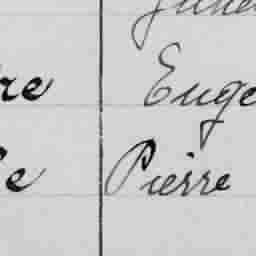 re Euge
e Pierre